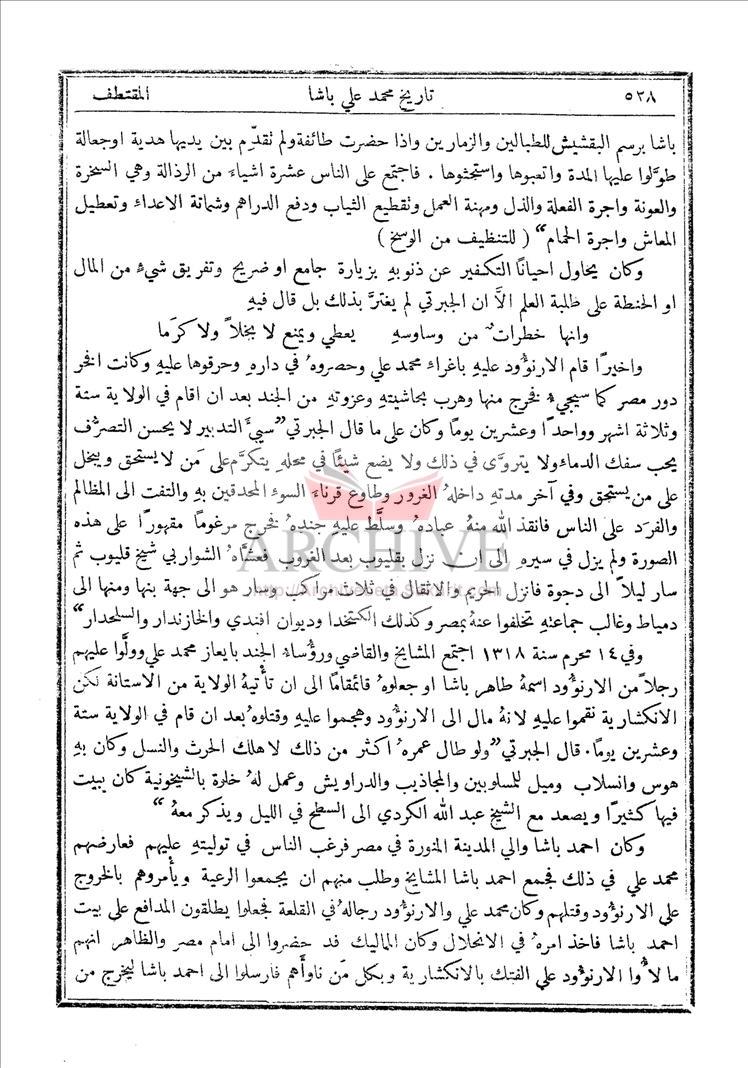 ٥٣٨ تاريخ محمد علي باشا المقتطف
باشا برسم البقشيش للطبالين والزمارين واذا حضرت طائفة ولم تقدّم بين يديها هدية او جعالة
طوّلوا عليها المدة واتعبوها واستحثوها . فاجتمع على الناس عشرة اشياء من الرذالة وهي السخرة
والعونة واجرة الفعلة والذل ومهنة العمل وتقطيع الثياب ودفع الدراهم وشماتة الاعداء وتعطيل
المعاش واجرة الحمام“ ( للتنظيف من الوسخ )
وكان يحاول احيانًا التكفير عن ذنوبهِ بزيارة جامع او ضريح وتفريق شيءٍ من المال
او الحنطة على طلبة العلم الاَّ ان الجبرتي لم يغترَّ بذلك بل قال فيهِ
وانها خطراتٌ من وساوسهِ يعطي ويمنع لا بخلاً ولا كرَما
واخيرًا قام الارنوُّود عليهِ باغراء محمد علي وحصروهُ في دارهِ وحرقوها عليهِ وكانت افخر
دور مصر كما سيجيءُ فخرج منها وهرب بحاشيتهِ وعزوتهِ من الجند بعد ان اقام في الولاية سنة
وثلاثة اشهر وواحدًا وعشرين يومًا وكان على ما قال الجبرتي ”سيئَّ التدبير لا يحسن التصرُّف
يحب سفك الدماء ولا يتروَّى في ذلك ولا يضع شيئًا في محلهِ يتكرَّم على مَن لا يستحق ويبخل
على من يستحق وفي آخر مدتهِ داخلهُ الغرور وطاوع قرناءَ السوءِ المحدقين بهِ والتفت الى المظالم
والفِرَد على الناس فانقذ الله منهُ عبادهُ وسلَّط عليهِ جندهُ فخرج مرغومًا مقهورًا على هذه
الصورة ولم يزل في سيرهِ الى ان نزل بقليوب بعد الغروب فعشَّاهُ الشواربي شيخ قليوب ثم
سار ليلاً الى دجوة فانزل الحريم والاثقال في ثلاث مراكب وسار هو الى جهة بنها ومنها الى
دمياط وغالب جماعتهِ تخلفوا عنهُ بمصر وكذلك الكتخدا وديوان افندي والخازندار والسلحدار“
وفي ١٤ محرم سنة ١٣١٨ اجتمع المشايخ والقاضي ورؤساءُ الجند بايعاز محمد علي وولَّوا عليهم
رجلاً من الارنوُّود اسمهُ طاهر باشا او جعلوهُ قائمقامًا الى ان تأتيهُ الولاية من الاستانة لكن
الانكشارية نقموا عليهِ لانهُ مال الى الارنوُّود وهجموا عليهِ وقتلوهُ بعد ان قام في الولاية ستة
وعشرين يومًا. قال الجبرتي ”ولو طال عمرهُ اكثر من ذلك لاهلك الحرث والنسل وكان بهِ
هوس وانسلاب وميل للمسلوبين والمجاذيب والدراويش وعمل لهُ خلوة بالشيخونية كان يبيت
فيها كثيرًا ويصعد مع الشيخ عبد الله الكردي الى السطح في الليل ويذكر معهُ “
وكان احمد باشا والي المدينة المنورة في مصر فرغب الناس في توليتهِ عليهم فعارضهم
محمد علي في ذلك فجمع احمد باشا المشايخ وطلب منهم ان يجمعوا الرعية ويأمروهم بالخروج
على الارنوُّود وقتلهم وكان محمد علي والارنوُّود رجالهُ في القلعة فجعلوا يطلقون المدافع على بيت
احمد باشا فاخذ امرهُ في الانحلال وكان المماليك قد حضروا الى امام مصر والظاهر انهم
مالأُوا الارنوُّود على الفتك بالانكشارية وبكل مَن ناوأَهم فارسلوا الى احمد باشا ليخرج من
ARCHIVE
http://Archivebeta.Sakhrit.com